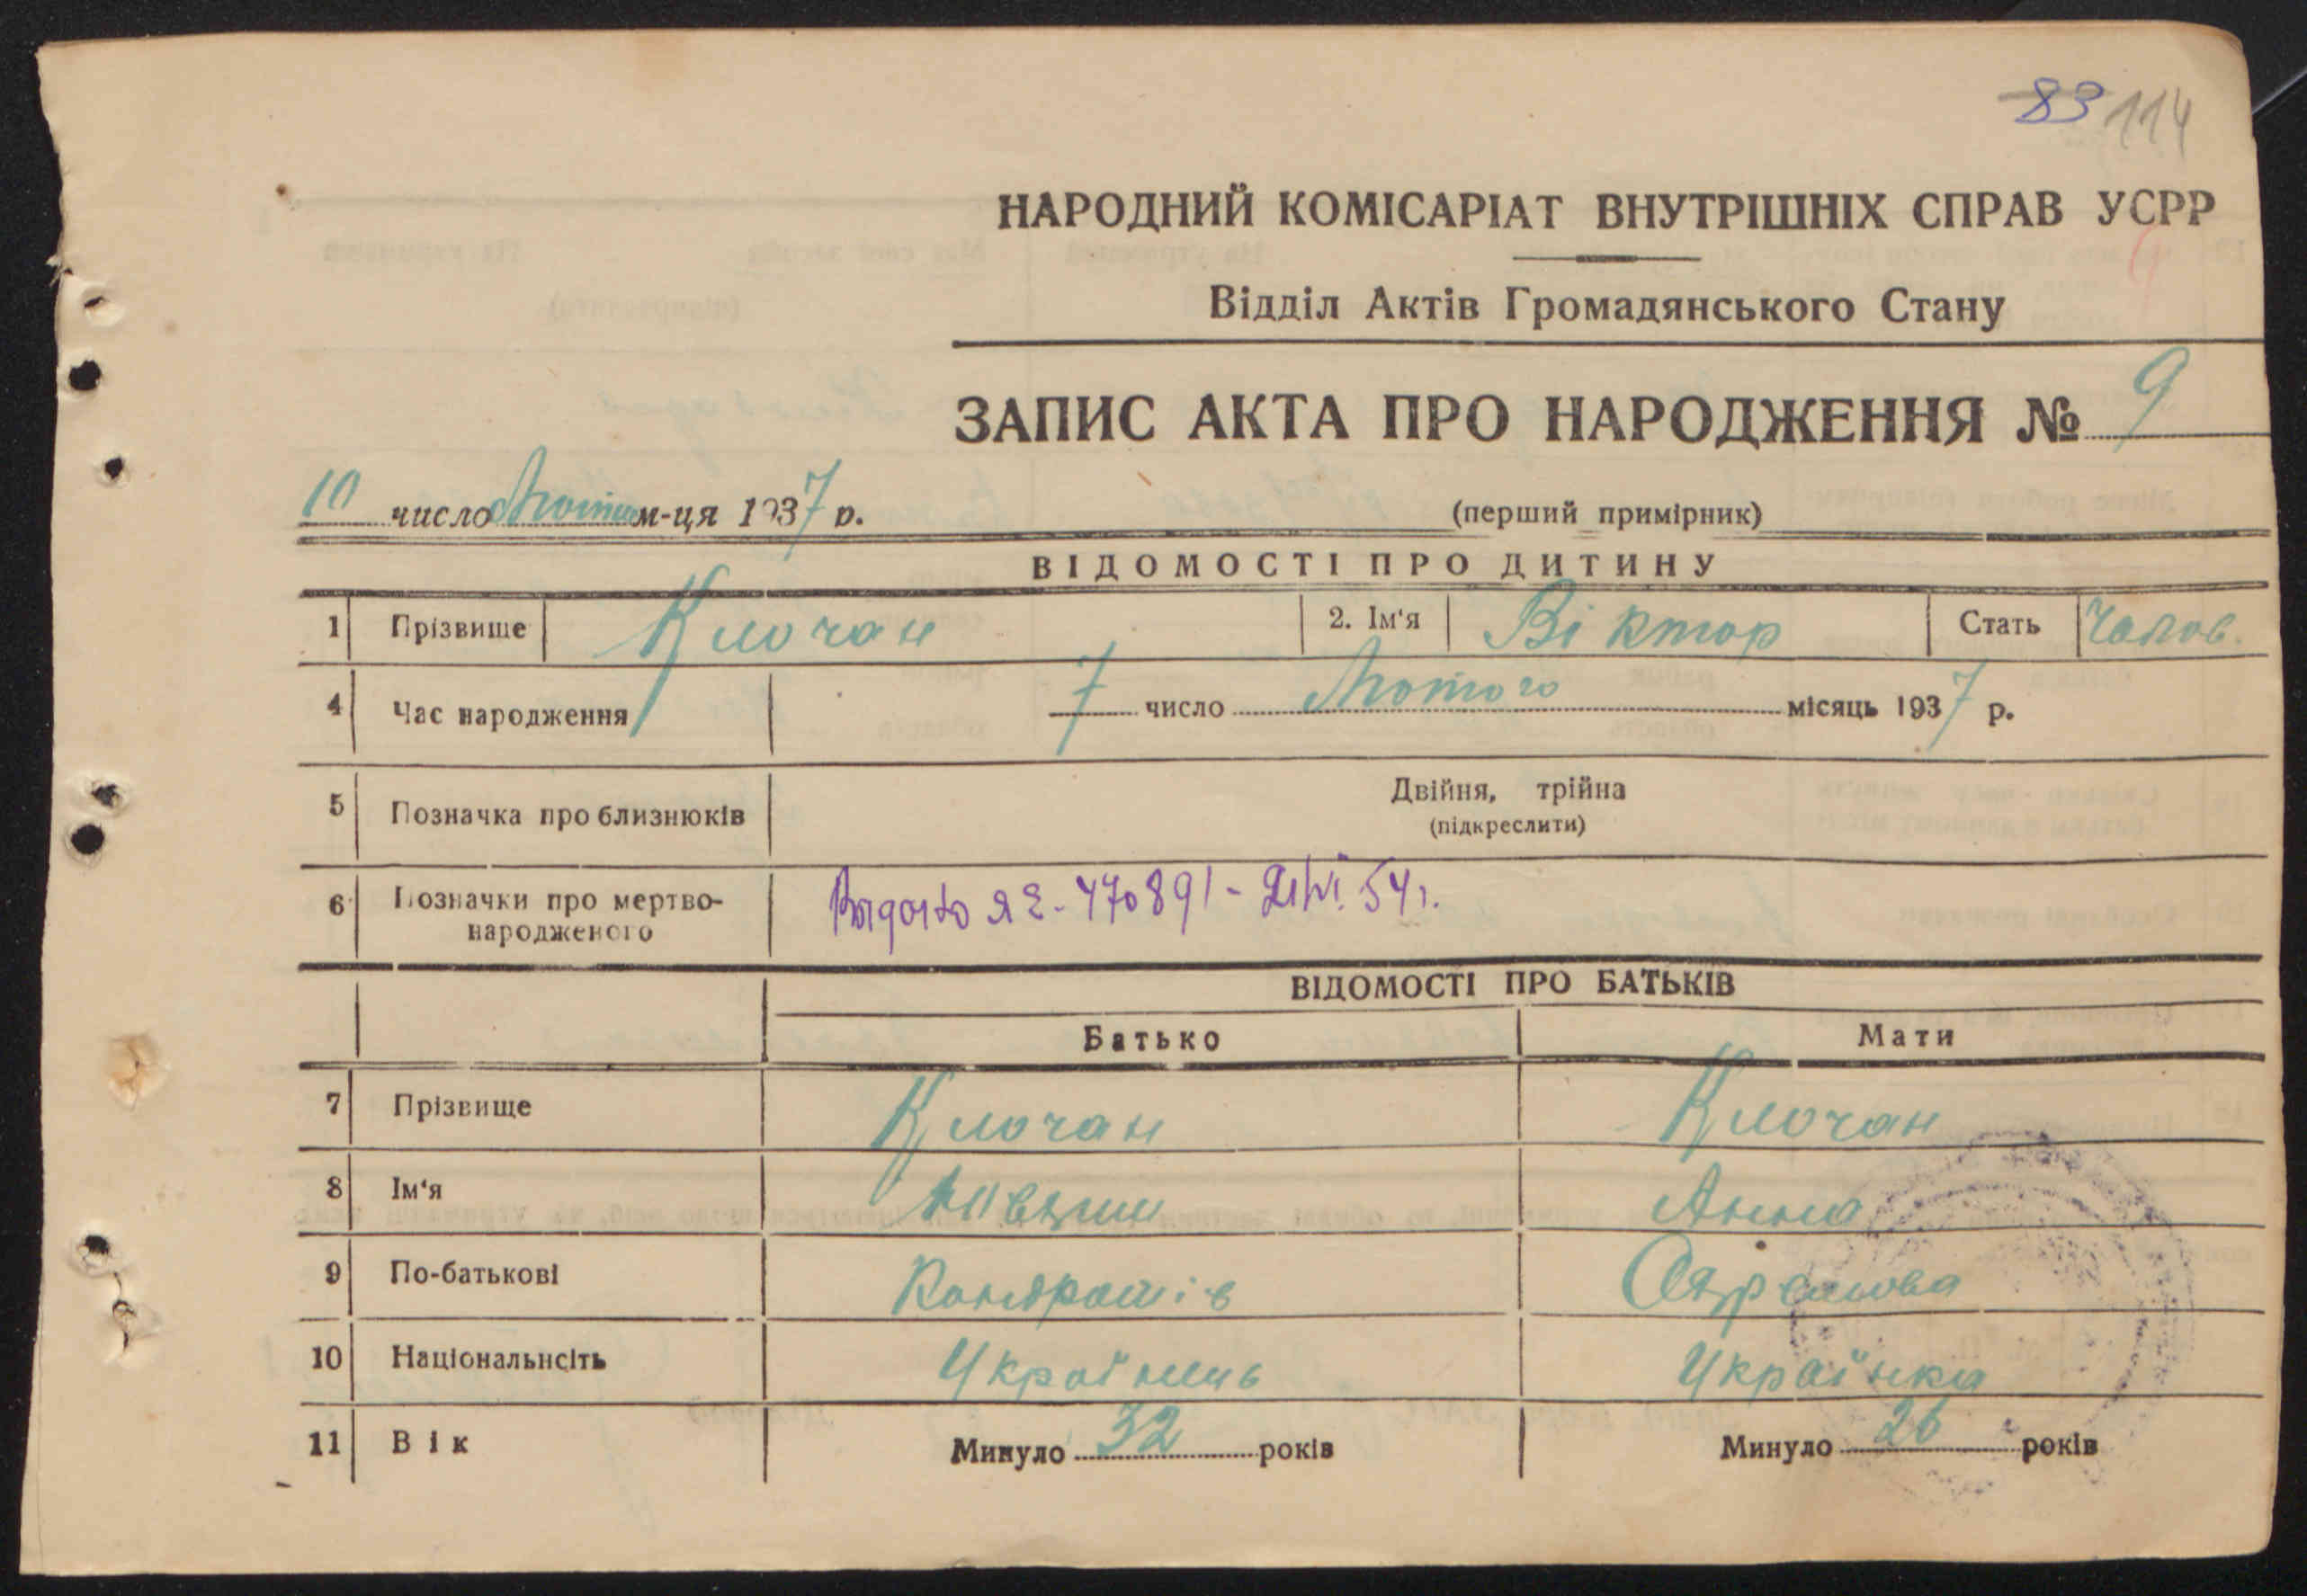 83 114
НАРОДНИЙ КОМІСАРІАТ ВНУТРІШНІХ СПРАВ УСРР
Відділ Актів Громадянського Стану
ЗАПИС АКТА ПРО НАРОДЖЕННЯ № 9
10 число м-ця 1937 р.
(перший примірник)
ВІДОМОСТІ ПРО ДИТИНУ
1 Прізвище Клочан 2. Ім'я Віктор Стать Чолов.
4 Час народження 7 число Лютого місяць 1937 р.
5 Позначка про близнюків Двійня, трійна
(підкреслити)
6 Позначки про мертво-
народженого
ВІДОМОСТІ ПРО БАТЬКІВ
Батько Мати
7 Прізвище Клочан Клочан
8 Ім'я Анна
9 По-батькові Кондратів
10 Національнсіть Українець Українка
11 Вік Минуло 32 років Минуло 26 років